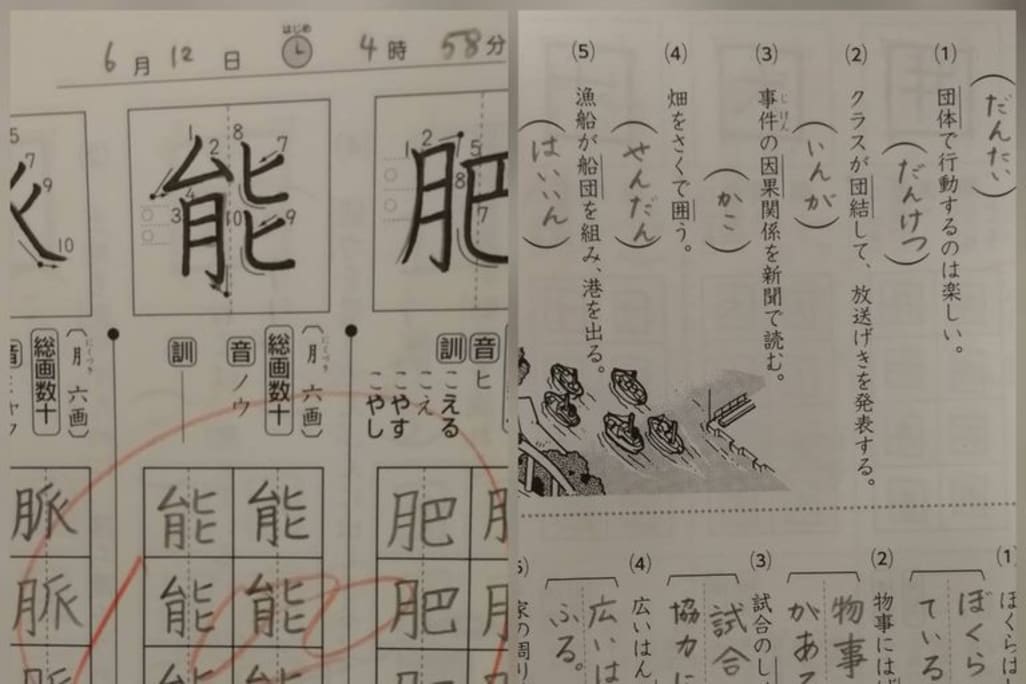 6月12日 はじめ 4時58分
肥
音 ヒ
訓 こえる
こえ
こやす
こやし
肥
肥
能
〔月 にくづき 六画〕
総画数十
音 ノウ
訓
能 能
能 能
〔月 にくづき 六画〕
総画数十
脈
脈
(だんたい)
(1) 団体で行動するのは楽しい。
(だんけつ)
(2) クラスが団結して、放送げきを発表する。
(いんが)
(3) 事件の因果関係を新聞で読む。
じけん
(かこ)
(4) 畑をさくで囲う。
(せんだん)
(5) 漁船が船団を組み、港を出る。
(はいいん)
(1) ぼくらは
ぼくら
ている
(2) 物事には
物事
がある
(3) 試合のし
試合
協力に
(4) 広いはん
広いは
ふる。
家の周り